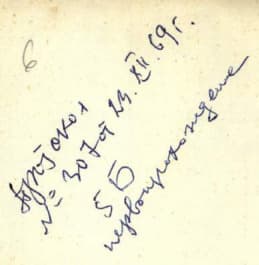 6
Протокол
№ 307 от 23.XII.69 г.
5Б
первопрохождение